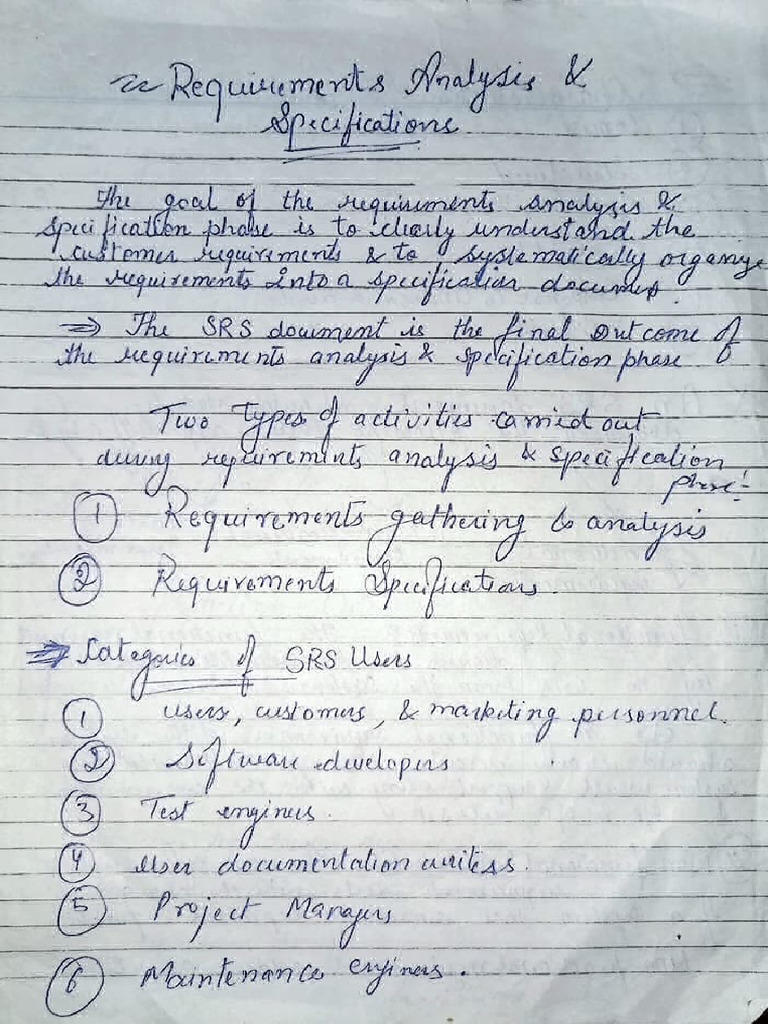 ~ Requirements Analysis &
Specifications
The goal of the requirements analysis &
specification phase is to clearly understand the
customer requirements & to systematically organize
the requirements into a specification document.
⇒ The SRS document is the final outcome of
the requirements analysis & specification phase
Two types of activities carried out
during requirements analysis & specification
phase:-
① Requirements gathering & analysis
② Requirements Specifications.
⇒ Categories of SRS Users
① Users, customers, & marketing personnel.
② Software developers
③ Test engineers.
④ User documentation writers.
⑤ Project Managers
⑥ Maintenance engineers.